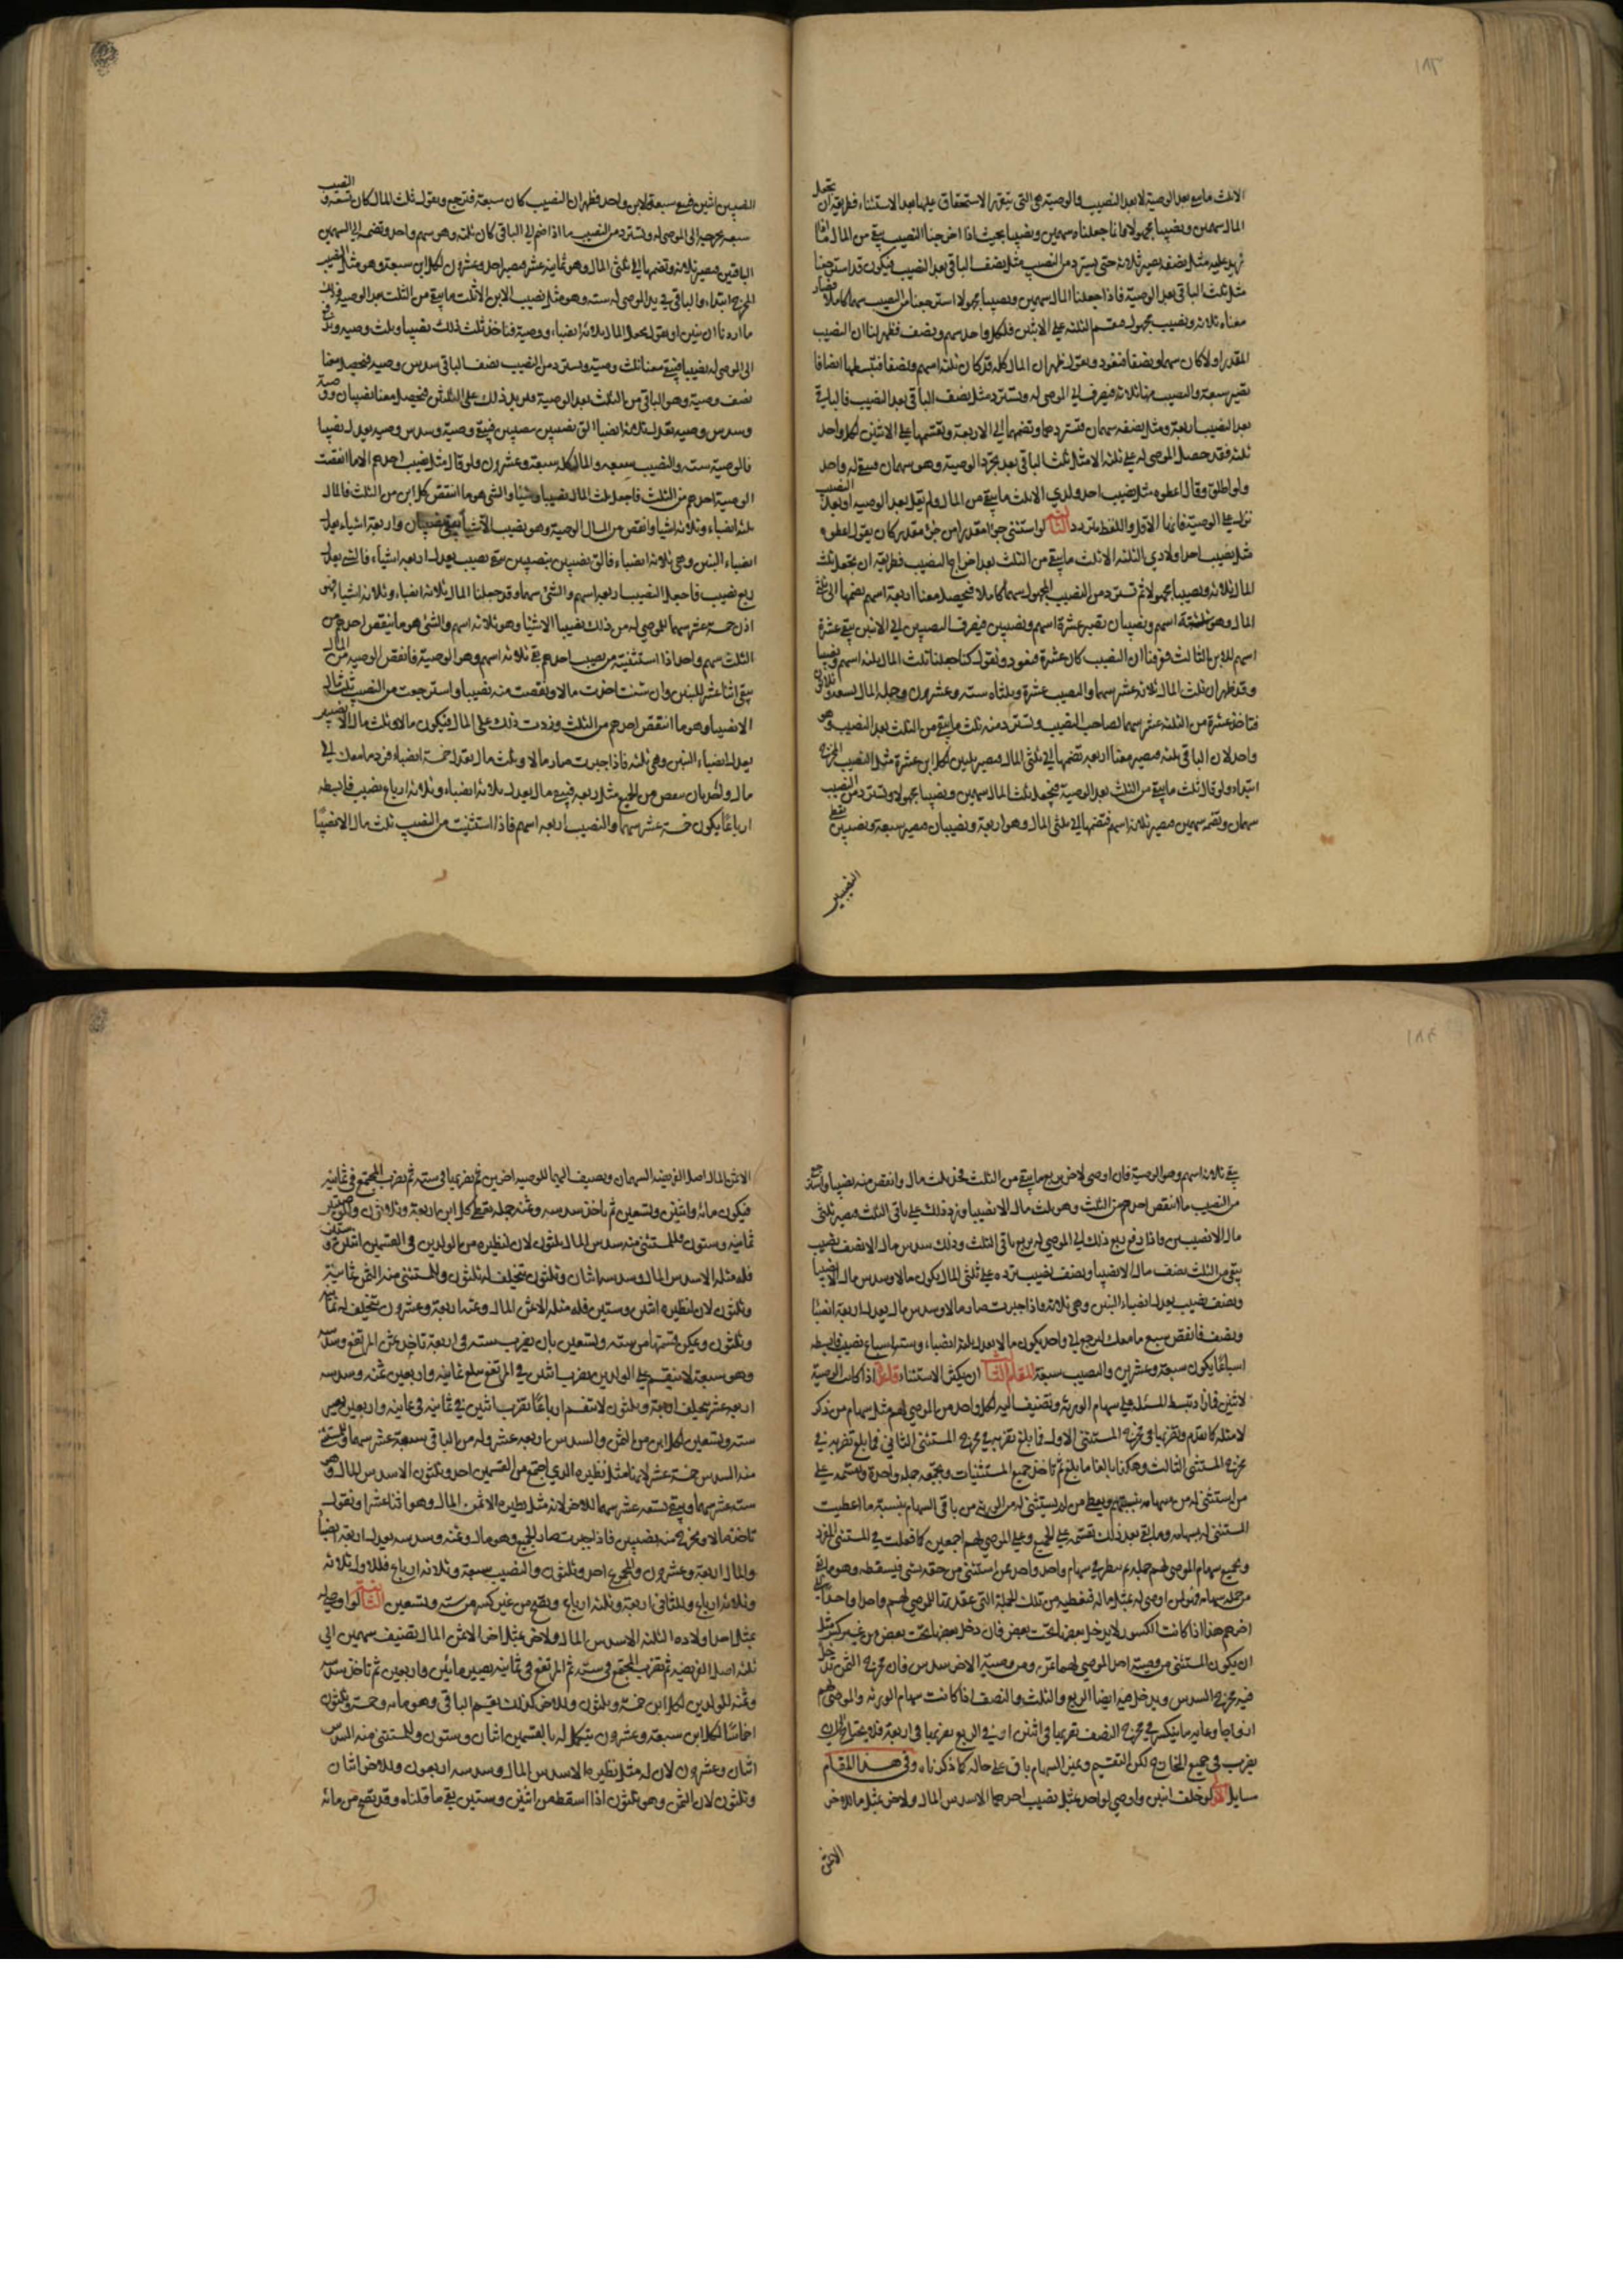 ١٨٣
الا ثلث ما يبقى بعد الوصية لا بعد النصيب فالوصية هي التي يتقرر الاستحقاق عليها بعد الاستثناء فطريقه ان تجعل
المال سهمين ونصيبا مجهولا فانا جعلناه سهمين ونصيبا بحيث اذا اخرجنا النصيب يبقى من المال ما اذا
نزيد عليه مثل نصفه يصير ثلاثة حتى يسترد من النصيب مثل نصف الباقي بعد النصيب فيكون قد استرجعنا
مثل ثلث الباقي بعد الوصية فاذا جعلنا المال سهمين ونصيبا مجهولا استرجعنا من النصيب سهما كاملا فصار
معناه ثلاثة ونصيب مجهول فنقسم الثلثة على الاثنين فلكل واحد سهم ونصف فظهر لنا ان النصيب
المقدر اولا كان سهما ونصفا فنعود ونقول ظهر ان المال كله قد كان ثلثة اسهم ونصفا فنبسطها انصافا
تصير سبعة والنصيب منها ثلاثة فيصرف الى الموصى له ونسترد مثل نصف الباقي بعد النصيب فالباقي
بعد النصيب اربعة ومثل نصفه سهمان فنستردهما ونضمهما الى الاربعة ونقسمها على الاثنين لكل واحد
ثلثة فقد حصل الموصى له على ثلثة الا مثل ثلث الباقي بعد مجرد الوصية وهو سهمان فيبقى له واحد
ولو اطلق وقال اعطوه مثل نصيب احد ولدي الا ثلث ما يبقى من المال ولم يقل بعد الوصية او بعد النصيب
نزل على الوصية فانها الاقل واللفظ متردد الثالثة لو استثنى جزءا مقدرا من جزء مقدر كان يقول اعطوه
مثل نصيب احد اولادي الثلثة الا ثلث ما يبقى من الثلث بعد اخراج النصيب فطريقه ان تجعل ثلث
المال ثلاثة ونصيبا مجهولا ثم تسترد من النصيب المجهول سهما كاملا فيحصل معنا اربعة اسهم نضمها الى ثلثي
المال وهو ستة اسهم ونصيبان تصير عشرة اسهم ونصيبين فيصرف النصيبين الى الابنين يبقى عشرة
اسهم للابن الثالث فعرفنا ان النصيب كان عشرة فنعود ونقول كنا جعلنا ثلث المال ثلثة اسهم ونصيبا
وقد ظهر ان ثلث المال ثلاثة عشر سهما والنصيب عشرة وثلثاه ستة وعشرون وجملة المال تسعة وثلاثون
فناخذ عشرة من الثلثة عشر سهما لصاحب النصيب ونسترد منه ثلث ما يبقى من الثلث بعد النصيب وهو
واحد لان الباقي ثلثة فيصير معنا اربعة نضمها الى ثلثي المال فيصير ثلثين لكل ابن عشرة مثل النصيب المخرج
ابتداء ولو قال ثلث ما يبقى من الثلث بعد الوصية فنجعل ثلث المال سهمين ونصيبا مجهولا ونسترد من النصيب
سهمان ونضمه سهمين فيصير ثلاثة اسهم فنضمها الى ثلثي المال وهو اربعة ونصيبان فيصير سبعة ونصيبين نعطي
النصيبين
النصيبين اثنين فيبقى سبعة لابن واحد فظهر ان النصيب كان سبعة فنرجع ونقول ثلث المال كان تسعة والنصيب
سبعة نخرجها الى الموصى له ونسترد من النصيب ما اذا ضم الى الباقي كان ثلثه وهو سهم واحد ونضمه الى السهمين
الباقيين فيصير ثلاثة ونضمها الى ثلثي المال وهو ثمانية عشر فيصير احد وعشرون لكل ابن سبعة وهو مثل النصيب
المخرج ابتداء والباقي في يد الموصى له ستة وهو مثل نصيب الابن الا ثلث ما يبقى من الثلث بعد الوصية وذلك
ما اردنا ان نبين او نقول نجعل المال ثلاثة انصباء ووصية فناخذ ثلث ذلك نصيبا وثلث وصية وندفع
الى الموصى له نصيبا فيبقى معنا ثلث وصية ونسترد من النصيب نصف الباقي سدس وصية فيحصل معنا
نصف وصية وهو الباقي من الثلث بعد الوصية فنزيد ذلك على الثلثين فيحصل معنا نصيبان ووصية
وسدس وصية تعدل ثلثة انصباء الق نصيبين بنصيبين فيبقى وصية وسدس وصية تعدل نصيبا
فالوصية ستة والنصيب سبعة والمال كله سبعة وعشرون ولو قال مثل نصيب احدهم الا ما انقصت
الوصية احدهم من الثلث فاجعل ثلث المال نصيبا وشيئا والشيء هو ما انتقص كل ابن من الثلث فالمال
ثلثة انصباء وثلاثة اشياء وانقص من المال الوصية وهو نصيب الا شيئا يبقى نصيبان واربعة اشياء يعدل
انصباء البنين وهي ثلاثة انصباء فالق نصيبين بنصيبين يبقى نصيب يعدل اربعة اشياء فالشيء يعدل
ربع نصيب فاجعل النصيب اربعة اسهم والشيء سهما وقد جعلنا المال ثلاثة انصباء وثلاثة اشياء فهو
اذن خمسة عشر سهما للموصى له من ذلك نصيبا الا شيئا وهو ثلاثة اسهم والشيء هو ما ينقص احدهم من
الثلث سهم واحد اذا استثنيته من نصيب احدهم بقي ثلاثة اسهم وهو الوصية فانقص الوصية من المال
يبقى اثنا عشر للبنين وان شئت اخذت مالا ونقصت منه نصيبا واسترجعت من النصيب ثلث مال
الا نصيبا وهو ما انتقص احدهم من الثلث وزدت ذلك على المال فيكون مالا وثلث مال الا نصيبين
يعدل انصباء البنين وهي ثلثة فاذا جبرت صار مالا وثلث مال يعدل خمسة انصباء فرد ما معك الى
مال وذلك بان تنقص من الجميع مثل ربعه فيبقى مال يعدل ثلاثة انصباء وثلاثة ارباع نصيب فابسطه
ارباعا يكون خمسة عشر سهما والنصيب اربعة اسهم فاذا استثنيت من النصيب ثلث مال الا نصيبا
١٨٤
يبقى ثلاثة اسهم وهو الوصية فان اوصى لاخر بربع ما يبقى من الثلث فخذ ثلث مال وانقص منه نصيبا واسترجع
من النصيب ما انتقص احدهم من الثلث وهو ثلث مال الا نصيبا وزد ذلك على باقي الثلث فيصير ثلثي
مال الا نصيبين فاذا دفع ربع ذلك الى الموصى له بربع باقي الثلث وذلك سدس مال الا نصف نصيب
يبقى من الثلث نصف مال الا نصيبا ونصف نصيب نزده على ثلثي المال يكون مالا وسدس مال الا نصيبا
ونصف نصيب يعدل انصباء البنين وهي ثلاثة فاذا جبرت صار مالا وسدس مال يعدل اربعة انصباء
ونصف فانقص سبع ما معك ليرجع الى واحد يكون مالا يعدل ثلثة انصباء وستة اسباع نصيب فابسطه
اسباعا يكون سبعة وعشرين والنصيب سبعة المقام الثاني ان يكثر الاستثناء فاعلم اذا كانت الوصية
لاثنين فان دبسط المسئلة على سهام الورثة ونضيف اليه لكل واحد من الموصى لهم مثل سهام من ذكر
لا مثله كما تقدم ونضربها في مخرج المستثنى الاول فما بلغ نضربه في مخرج المستثنى الثاني فما بلغ نضربه في
مخرج المستثنى الثالث وهكذا بالغا ما بلغ ثم ناخذ جميع المستثنيات ونجمعه جملة واحدة ونقسمه على
من استثنى له من سهامه بينهم ونعطي من لم يستثنى له من الورثة من باقي السهام بنسبة ما اعطيت
المستثنى له بسهامه وما بقي بعد ذلك نقسمه على الجميع وعلى الموصى لهم اجمعين كما فعلت في المستثنى المفرد
ونجمع سهام الموصى لهم جملة ثم ننظر في سهام واحد واحد ممن استثنى من حقه شيء فيسقطه وهو ما بقي
من جملة سهامه فهو لمن اوصى له بمثل ماله فنعطيه من تلك الجملة التي عقدتها للموصى لهم واحدا واحدا الى
اخرهم هذا اذا كانت الكسور لا يدخل بعضها تحت بعض فان دخل بعضها تحت بعض من غير كسر مثل
ان يكون المستثنى من وصية احد الموصى لهما ثمن ومن وصية الاخر سدس فان مخرج الثمن تدخل
فيه مخرج السدس ويدخل فيه ايضا الربع والثلث والنصف اذا كانت سهام الورثة والموصى لهم
ازواجا وغايه ما ينكسر في مخرج النصف نضربها في اثنين او في الربع نضربها في اربعة فلا يحتاج الى ان
يضرب في جميع المخارج لكن التقسيم وتميز السهام باق على حاله كما ذكرناه وفي هذا المقام
مسايل الاولى لو خلف ابنين واوصى لواحد بمثل نصيب احدهما الا سدس المال ولاخر بمثل ما للاخر
الا ثمن
الا ثمن المال اصل الفريضة سهمان ونضيف اليها للوصية اخرين ثم نضربها في ستة ثم نضرب المجتمع في ثمانية
فيكون مائة واثنين وتسعين ثم ناخذ سدسه وثمنه جملة فنعطي كل ابن اربعة وثلاثون ولكل وصية
ثمانية وستون وللمستثنى منه سدس المال ثلثون لان لنظيره من الولدين في القسمين اثنان وستين
فله مثله الا سدس المال وسدسه اثنان وثلثون يتخلف له ثلثون وللمستثنى منه الثمن ثمانية
وثلثون لان لنظيره اثنين وستين فله مثله الا ثمن المال وثمنه اربعة وعشرون يتخلف له ثمانية
وثلثون ويمكن قسمتها من ستة وتسعين بان يضرب ستة في اربعة ناخذ ثمن المرتفع وسدسه
وهو سبعة لا ينقسم على الولدين فضرب اثنين في المرتفع يبلغ ثمانية واربعين ثمنه وسدسه
اربعة عشر يتخلف اربعة وثلثون لا تنقسم ارباعا نضرب اثنين في ثمانية واربعين يصير
ستة وتسعين لكل ابن من الثمن والسدس اربعة عشر وله من الباقي سبعة عشر سهما وللمستثنى
منه السدس خمسة عشر لانها مثل نظيره الذي اجتمع من القسمين احد وثلثون الا سدس المال وهو
ستة عشر سهما ويبقى تسعة عشر سهما للاخر لانه مثل نظيره الا ثمن المال وهو اثنا عشر او نقول
ناخذ مالا ونخرج منه نصيبين فاذا جبرت صار الجميع وهو مال وثمنه وسدسه يعدل اربعة انصباء
والمال اربعة وعشرون والمجموع احد وثلثون والنصيب سبعة وثلاثة ارباع فللاول ثلاثة
وثلاثة ارباع وللثاني اربعة وثلثة ارباع وتصح من غير كسر من ستة وتسعين الثانية لو اوصى له
بمثل احد اولاده الثلثة الا سدس المال ولاخر بمثل اخر الا ثمن المال نضيف سهمين الى
ثلثة اصل الفريضة ثم نضرب المجتمع في ستة ثم المرتفع في ثمانية يصير مائتين واربعين ثم ناخذ سدسه
وثمنه للولدين لكل ابن خمسة وثلثون وللاخر كذلك نقسم الباقي وهو مائة وخمسة وثلثون
اخماسا لكل ابن سبعة وعشرون يتكمل له بالقسمين اثنان وستون وللمستثنى منه السدس
اثنان وعشرون لان له مثل نظيره الا سدس المال وسدسه اربعون وللاخر اثنان
وثلثون لان الثمن وهو ثلثون اذا اسقطه من اثنين وستين بقي ما قلناه وقد تصح من مائة